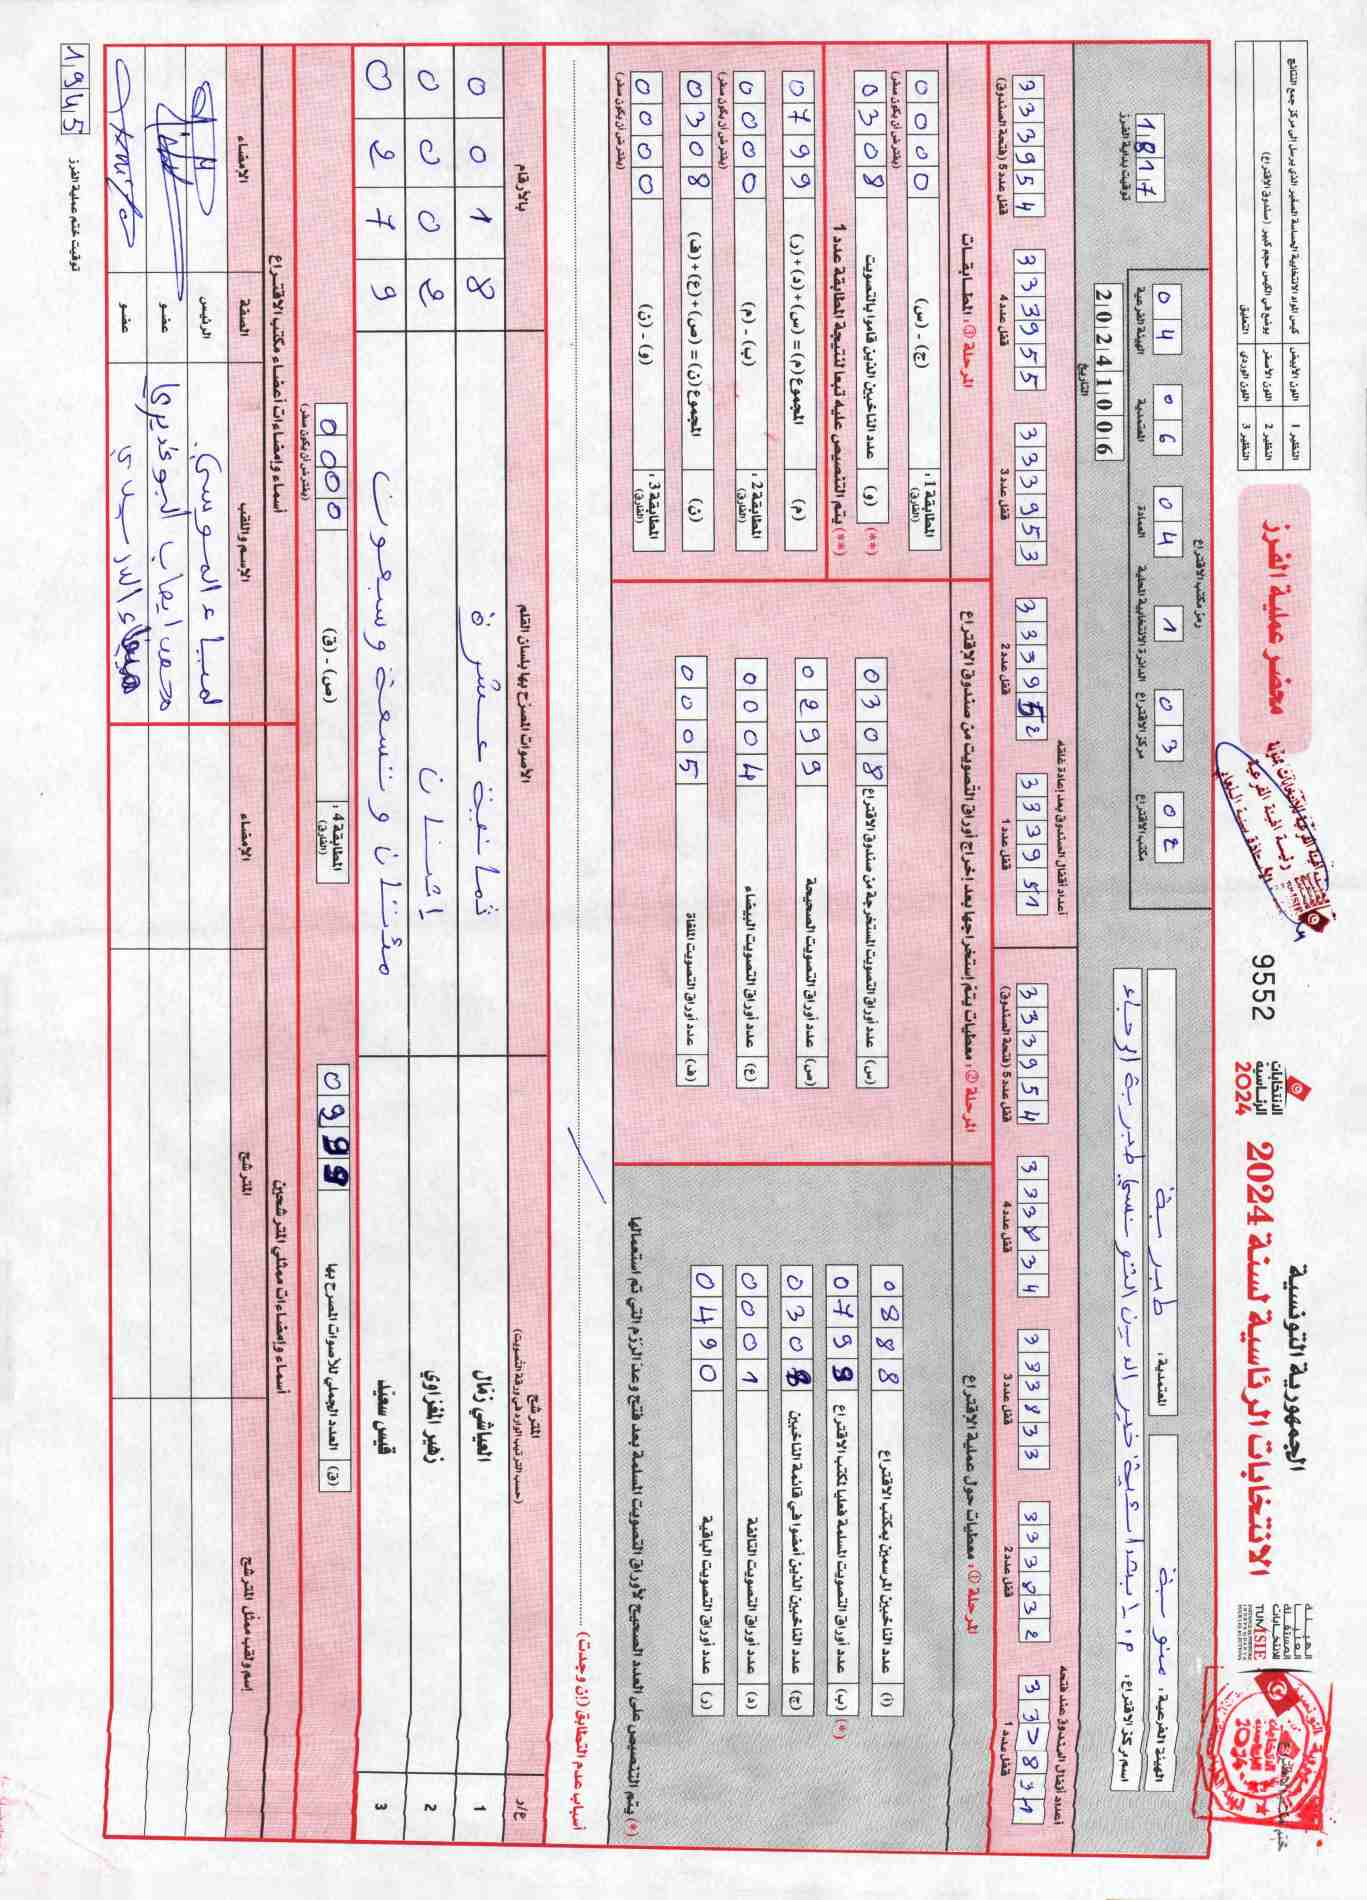 الجمهورية التونسية
الانتخابات الرئاسية لسنة 2024
الانتخابات الرئاسية 2024
9552
محضر عملية الفرز
النظير 1 اللون الأبيض كيس المواد الانتخابية الحساسة الصغير الذي يرسل إلى مركز جمع النتائج
النظير 2 اللون الأصفر يوضع في الكيس حجم كبير (صندوق الاقتراع)
النظير 3 اللون الوردي التعليق
الهيئة الفرعية: منوبة
المعتمدية: طبربة
اسم مركز الاقتراع:
رمز مكتب الاقتراع
04 الهيئة الفرعية
06 المعتمدية
04 العمادة
1 الدائرة الانتخابية المحلية
03 مركز الاقتراع
02 مكتب الاقتراع
20241006
التاريخ
1817
توقيت بداية الفرز
أعداد أقفال الصندوق عند فتحه
333831 قفل عدد 1
333832 قفل عدد 2
333833 قفل عدد 3
333834 قفل عدد 4
333954 قفل عدد 5 (فتحة الصندوق)
أعداد أقفال الصندوق بعد إعادة غلقه
333951 قفل عدد 1
333952 قفل عدد 2
333953 قفل عدد 3
333955 قفل عدد 4
333954 قفل عدد 5 (فتحة الصندوق)
المرحلة ①: معطيات حول عملية الاقتراع
(أ) عدد الناخبين المرسمين بمكتب الاقتراع 0888
(ب) عدد أوراق التصويت المسلمة فعليا لمكتب الاقتراع 0799 (*)
(ج) عدد الناخبين الذين أمضوا في قائمة الناخبين 0308
(د) عدد أوراق التصويت التالفة 0001
(ر) عدد أوراق التصويت الباقية 0490
(*) يتم التنصيص على العدد الصحيح لأوراق التصويت المسلمة بعد فتح وعد الرزم التي تم استعمالها
المرحلة ②: معطيات يتم إستخراجها بعد إخراج أوراق التصويت من صندوق الاقتراع
(س) عدد أوراق التصويت المستخرجة من صندوق الاقتراع 0308
(ص) عدد أوراق التصويت الصحيحة 0299
(ع) عدد أوراق التصويت البيضاء 0004
(ف) عدد أوراق التصويت الملغاة 0005
المرحلة ③: المطابقات
المطابقة 1: (الفارق) (ج) - (س) 0000 (يفترض أن يكون صفر)
(**) (و) عدد الناخبين الذين قاموا بالتصويت 0308
(**) يتم التنصيص عليه تبعا لنتيجة المطابقة عدد 1
(م) المجموع (م) = (س)+(د)+(ر) 0799
المطابقة 2: (الفارق) (ب) - (م) 0000 (يفترض أن يكون صفر)
(ن) المجموع (ن) = (ص)+(ع)+(ف) 0308
المطابقة 3: (الفارق) (و) - (ن) 0000 (يفترض أن يكون صفر)
أسباب عدم التطابق (إن وجدت)
ع/ر المترشح (حسب الترتيب الوارد في ورقة التصويت) الأصوات المصرّح بها بلسان القلم بالأرقام
1 العياشي زمّال ثمانية عشرة 0018
2 زهير المغزاوي إثنان 0002
3 قيس سعيّد مئتان وتسعة وسبعون 0279
(ق) العدد الجملي للأصوات المصرح بها 0299
المطابقة 4: (الفارق) (ص) - (ق) 000 (يفترض أن يكون صفر)
أسماء وإمضاءات ممثلي المترشحين
إسم ولقب ممثّل المترشح المترشح الإمضاء
أسماء وإمضاءات أعضاء مكتب الاقتراع
الإسم واللقب الصفة الإمضاء
لمياء الموسي الرئيس
عضو
عضو
1945 توقيت ختم عملية الفرز